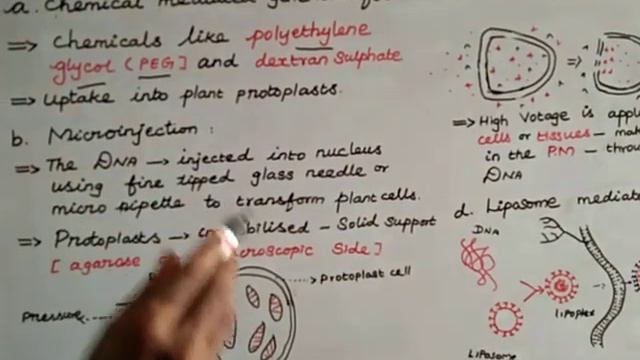 a. Chemical mediated
=> Chemicals like polyethylene
glycol (PEG] and dextran sulphate
=> Uptake into plant protoplasts.
b. Microinjection :
=> The DNA → injected into nucleus
using fine tipped glass needle or
micro pipette to transform plant cells.
=> Protoplasts → - Solid Support
[ agarose Side ]
Protoplast cell
Pressure
=> High Votage is
cells or tissues -
in the PM -
DNA
d. Liposome
DNA
lipoplex
Liposome